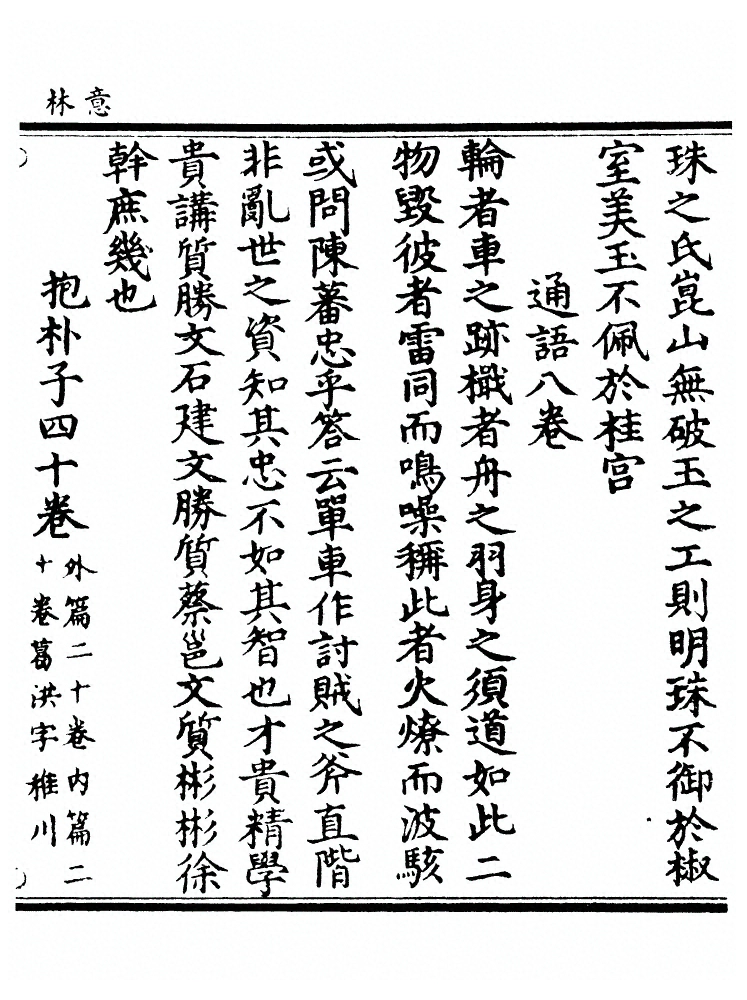 意林
珠之氏崑山無破玉之工則明珠不御於椒
室美玉不佩於桂宫
通語八卷
輪者車之跡檝者舟之羽身之須道如此二
物毀彼者雷同而鳴噪稱此者火燎而波駭
或問陳蕃忠乎答云單車作討賊之斧直階
非亂世之資知其忠不如其智也才貴精學
貴講質勝文石建文勝質蔡邕文質彬彬徐
幹庶幾也
抱朴子四十卷
外篇二十卷内篇二
十卷葛洪字稚川